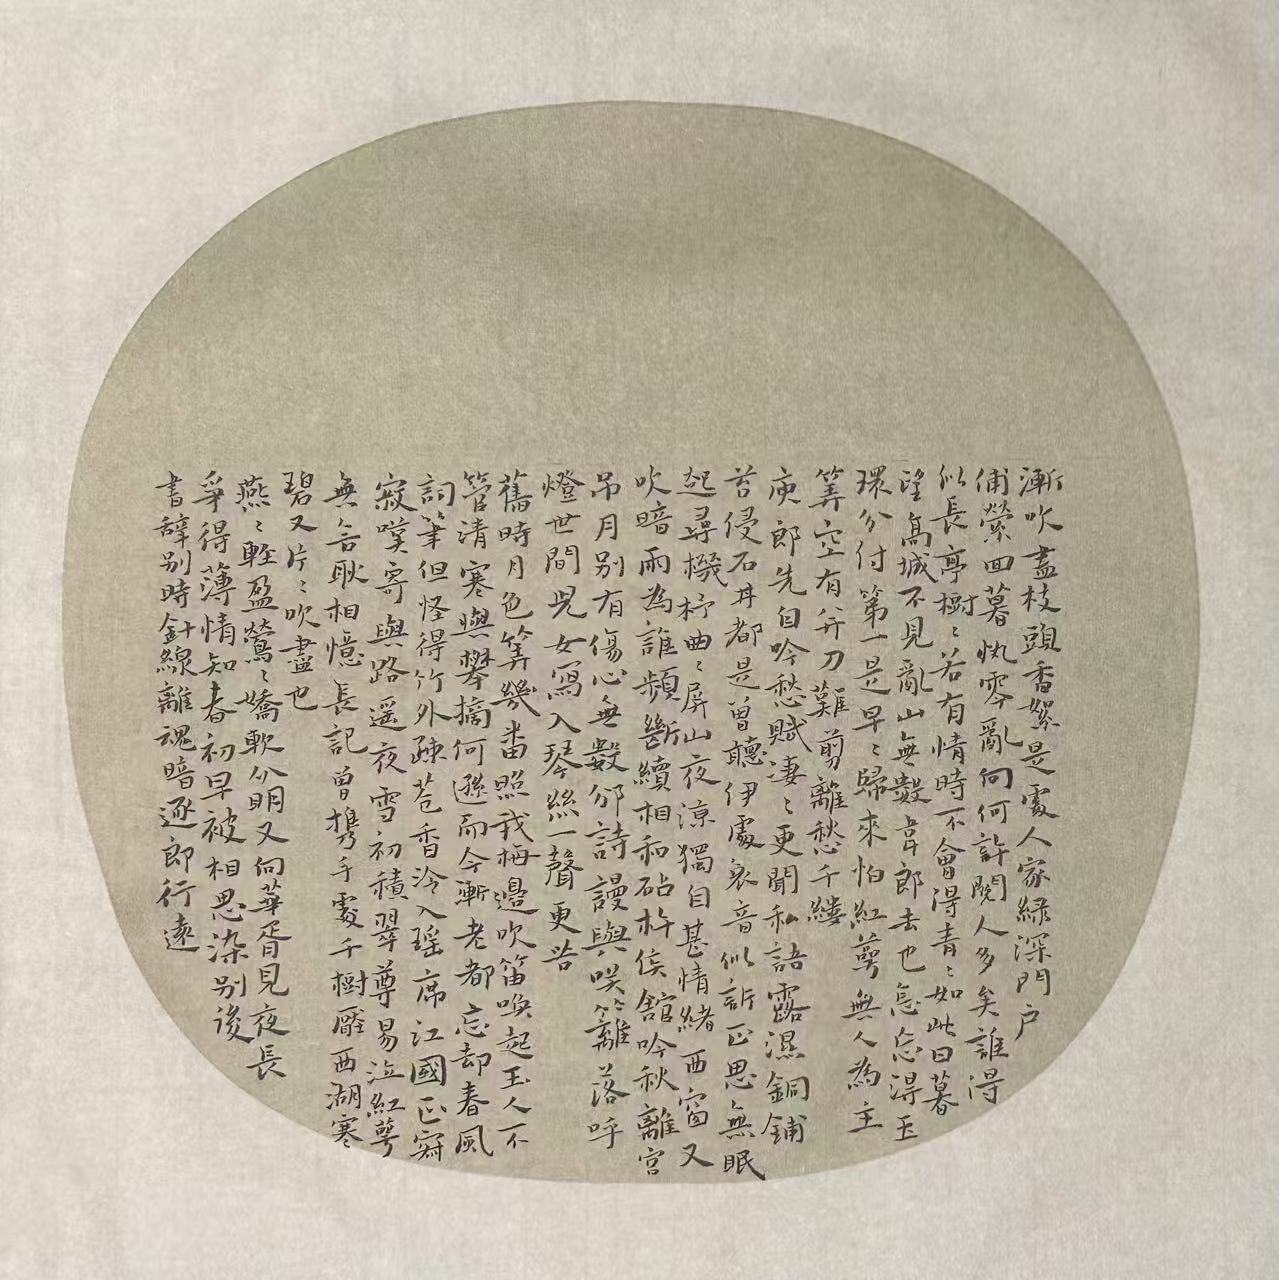 漸吹盡枝頭香絮是處人家綠深門戶
浦縈回暮帆零亂向何許閱人多矣誰得
似長亭樹〻若有情時不會得青〻如此日暮
望高城不見亂山無數韋郎去也怎忘得玉
環分付第一是早〻歸來怕紅萼無人為主
算空有并刀難剪離愁千縷
庾郎先自吟愁賦淒〻更聞私語露濕銅鋪
苔侵石井都是曾聽伊處哀音似訴正思無眠
起尋機杼曲〻屏山夜涼獨自甚情緒西窗又
吹暗雨為誰頻斷續相和砧杵侯館吟秋離宮
吊月別有傷心無數豳詩謾與笑籬落呼
燈世間兒女寫入琴絲一聲更苦
舊時月色算幾番照我梅邊吹笛喚起玉人不
管清寒與攀摘何遜而今漸老都忘却春風
詞筆但怪得竹外疎花香冷入瑤席江國正寂
寂嘆寄與路遥夜雪初積翠尊易泣紅萼
無言耿相憶長記曾攜手處千樹壓西湖寒
碧又片〻吹盡也
燕〻輕盈鶯〻嬌軟分明又向華胥見夜長
爭得薄情知春初早被相思染別後
書辭別時針線離魂暗逐郎行遠